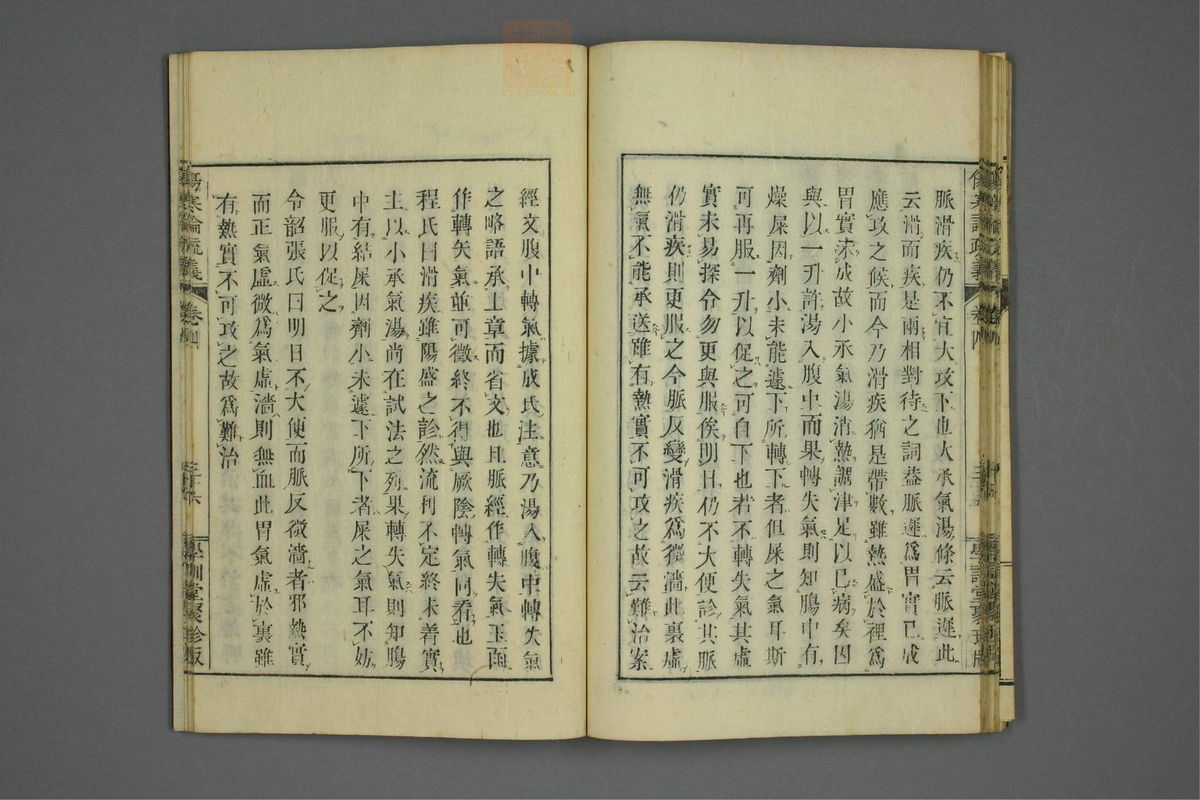 脈滑疾仍不宜大攻下也大承氣湯條云脈遲此
云滑而疾是兩相對待之詞葢脈遲爲胃實已成
應攻之候而今乃滑疾猶是帶數雖熱盛於裡爲
胃實未成故小承氣湯消熱調津足以已病矣因
與以一升許湯入腹中而果轉失氣則知腸中有
燥屎因劑小未能遽下所轉下者但屎之氣耳斯
可再服一升以促之可自下也若不轉失氣其虛
實未易探令勿更與服俟明日仍不大便診其脈
仍滑疾則更服之今脈反變滑疾爲微濇此裏虛
無氣不能承送雖有熱實不可攻之故云難治案
經文腹中轉氣據成氏注意乃湯入腹中轉失氣
之略語承上章而省文也且脈經作轉失氣玉函
作轉矢氣並可徵終不得與厥陰轉氣同看也
程氏曰滑疾雖陽盛之診然流利不定終未着實
主以小承氣湯尚在試法之列果轉失氣則知腸
中有結屎因劑小未遽下所下者屎之氣耳不妨
更服以促之
令韶張氏曰明日不大便而脈反微濇者邪熱實
而正氣虛微爲氣虛濇則無血此胃氣虛於裏雖
有熱實不可攻之故爲難治
傷寒論疏義
卷四
三十六
學訓堂聚珍版